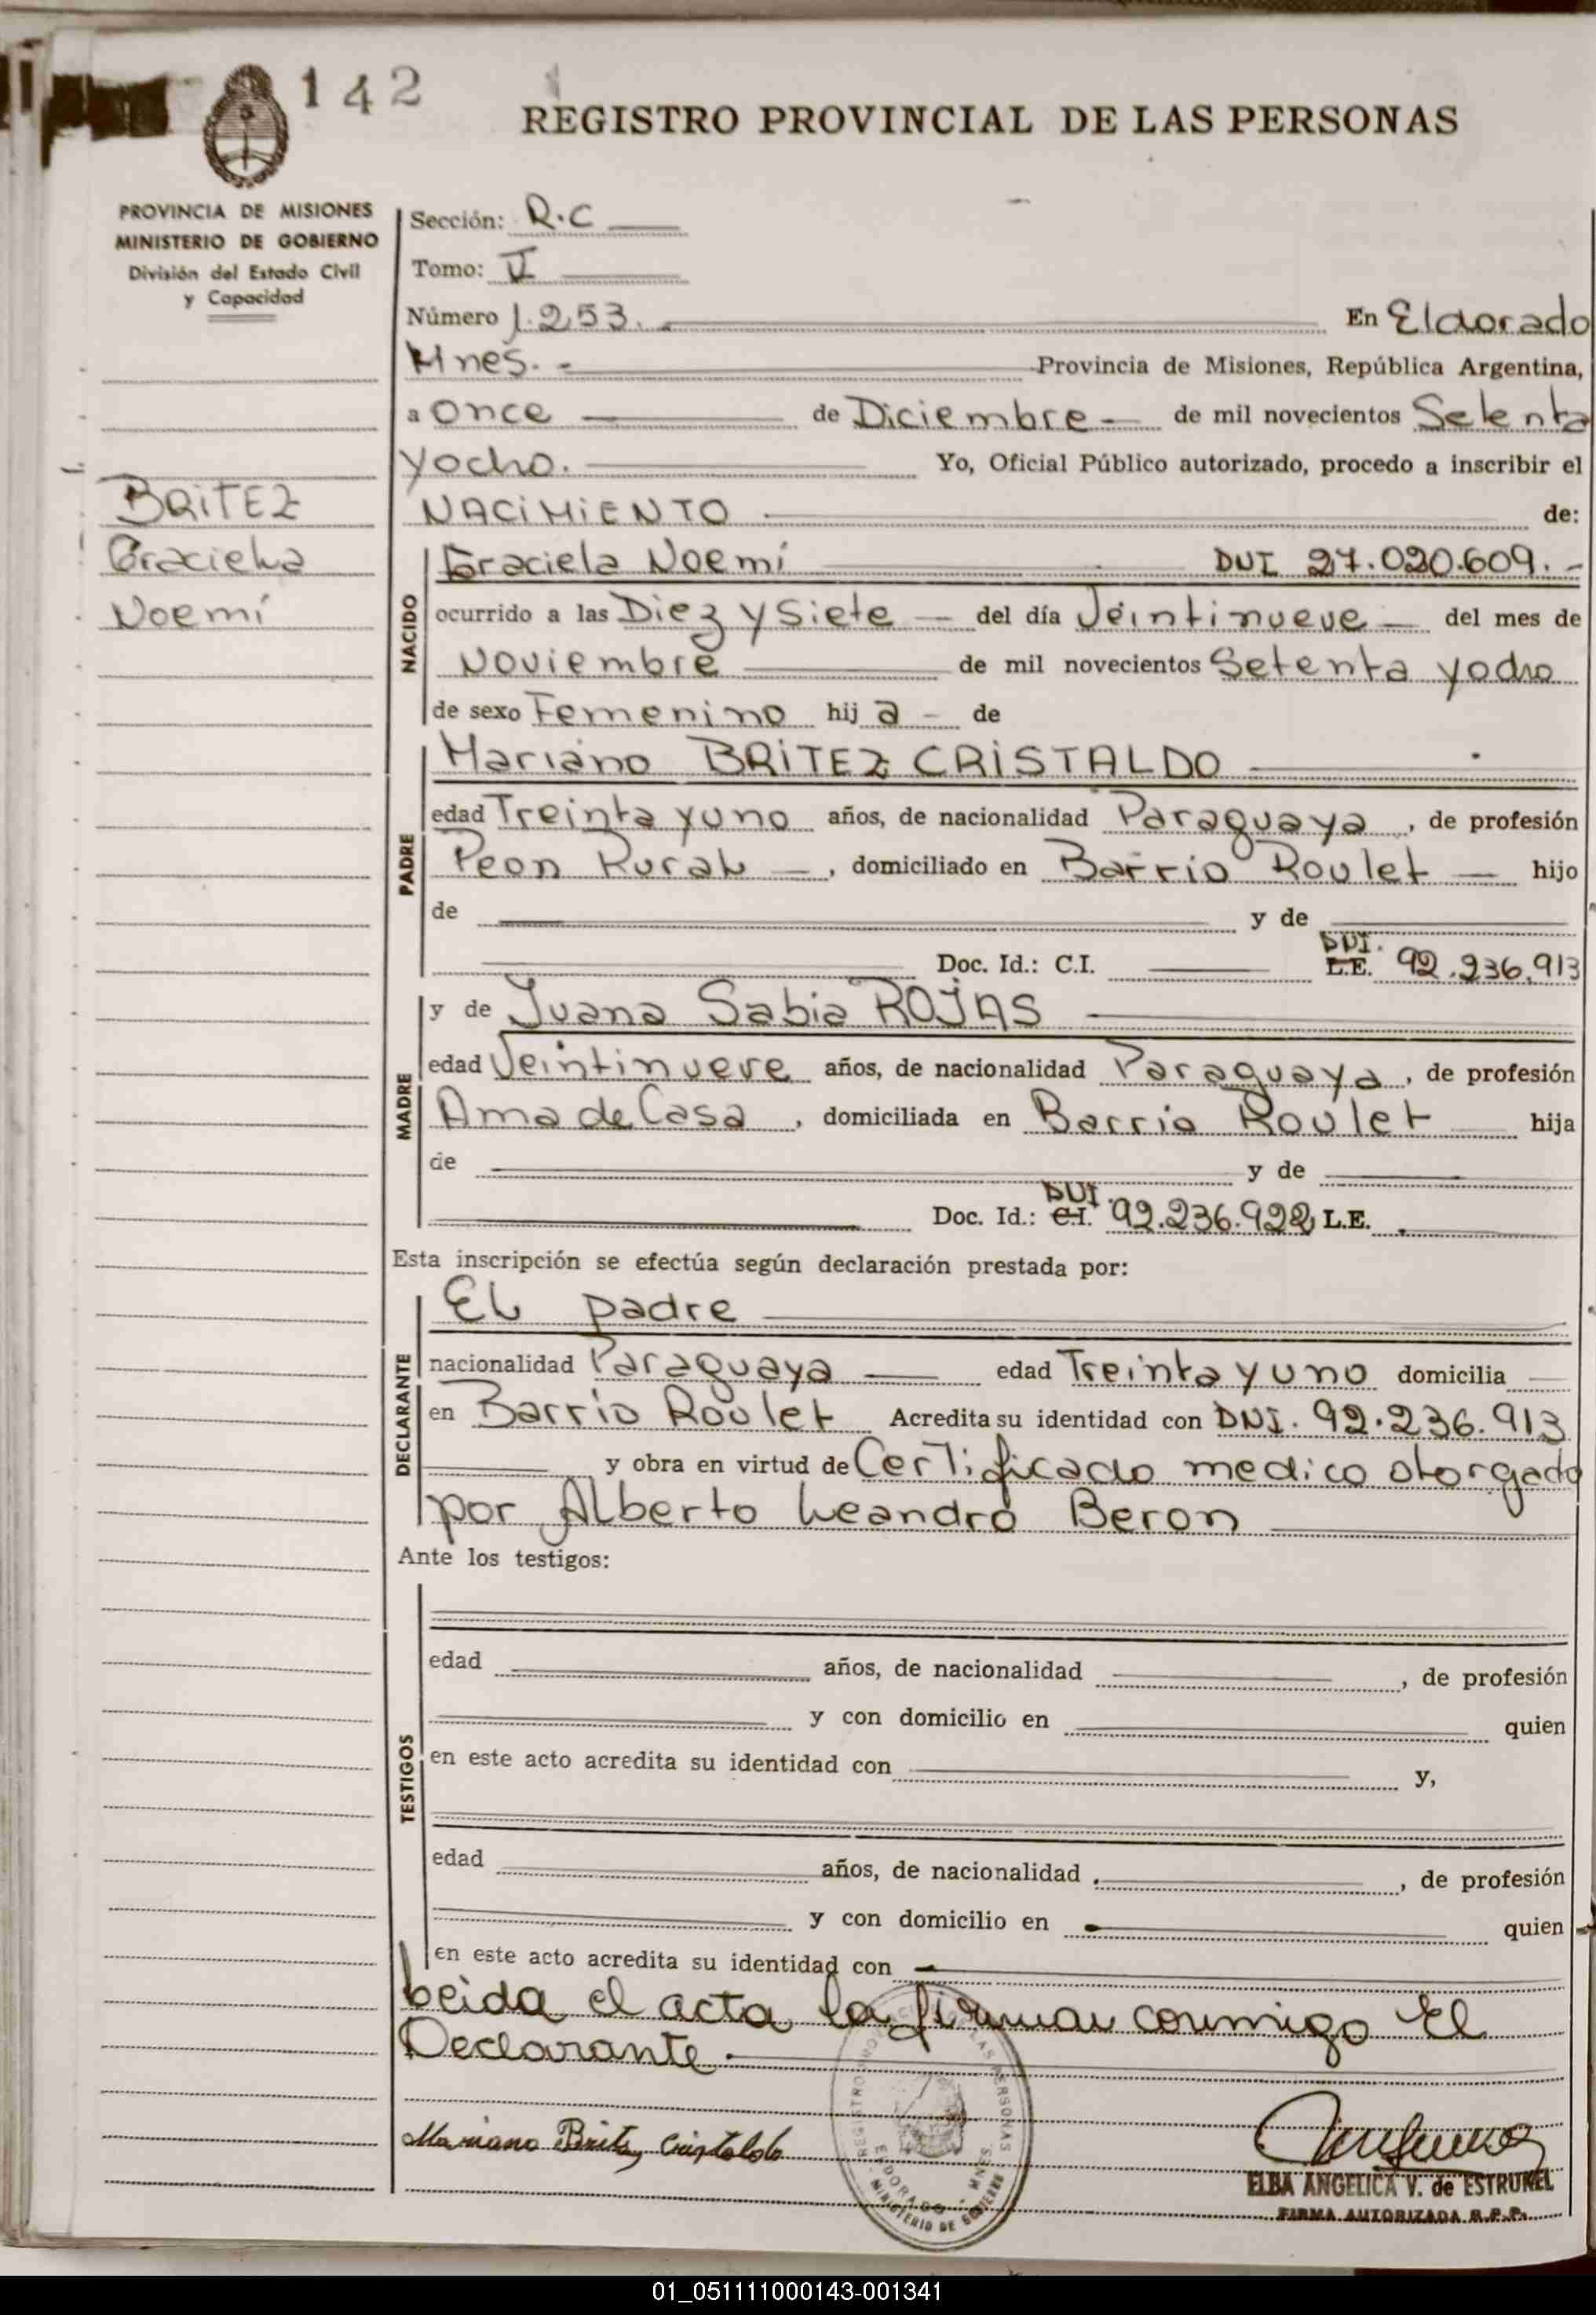 142
REGISTRO PROVINCIAL DE LAS PERSONAS
PROVINCIA DE MISIONES
MINISTERIO DE GOBIERNO
División del Estado Civil
y Capacidad
BRITEZ
Graciela
Noemí
Sección: R.C
Tomo: V
Número 1.253. En Eldorado
Mnes. - Provincia de Misiones, República Argentina,
a Once de Diciembre de mil novecientos Setenta
y ocho. Yo, Oficial Público autorizado, procedo a inscribir el
NACIMIENTO de:
NACIDO
Graciela Noemí DNI 27.020.609.-
ocurrido a las Diez y Siete del día Veintinueve del mes de
Noviembre de mil novecientos Setenta y ocho
de sexo Femenino hij a - de
PADRE
Mariano BRITEZ CRISTALDO
edad Treinta y uno años, de nacionalidad Paraguaya, de profesión
Peon Rural, domiciliado en Barrio Roulet hijo
de y de
Doc. Id.: C.I. DNI. L.E. 92.236.913
MADRE
y de Juana Sabia ROJAS
edad Veintinueve años, de nacionalidad Paraguaya, de profesión
Ama de Casa, domiciliada en Barrio Roulet hija
de y de
Doc. Id.: DNI. C.I. 92.236.922 L.E.
Esta inscripción se efectúa según declaración prestada por:
DECLARANTE
El padre
nacionalidad Paraguaya edad Treinta y uno domicilia
en Barrio Roulet Acredita su identidad con DNI. 92.236.913
y obra en virtud de Certificado medico otorgado
por Alberto Leandro Beron
Ante los testigos:
TESTIGOS
edad años, de nacionalidad , de profesión
y con domicilio en quien
en este acto acredita su identidad con y,
edad años, de nacionalidad , de profesión
y con domicilio en quien
en este acto acredita su identidad con
Leida el acta la firman conmigo El
Declarante.
Mariano Britez Cristaldo
REGISTRO PROVINCIAL DE LAS PERSONAS
ELDORADO - MNES.
MINISTERIO DE GOBIERNO
ELBA ANGELICA V. de ESTRUKEL
FIRMA AUTORIZADA R.P.P.
01_051111000143-001341